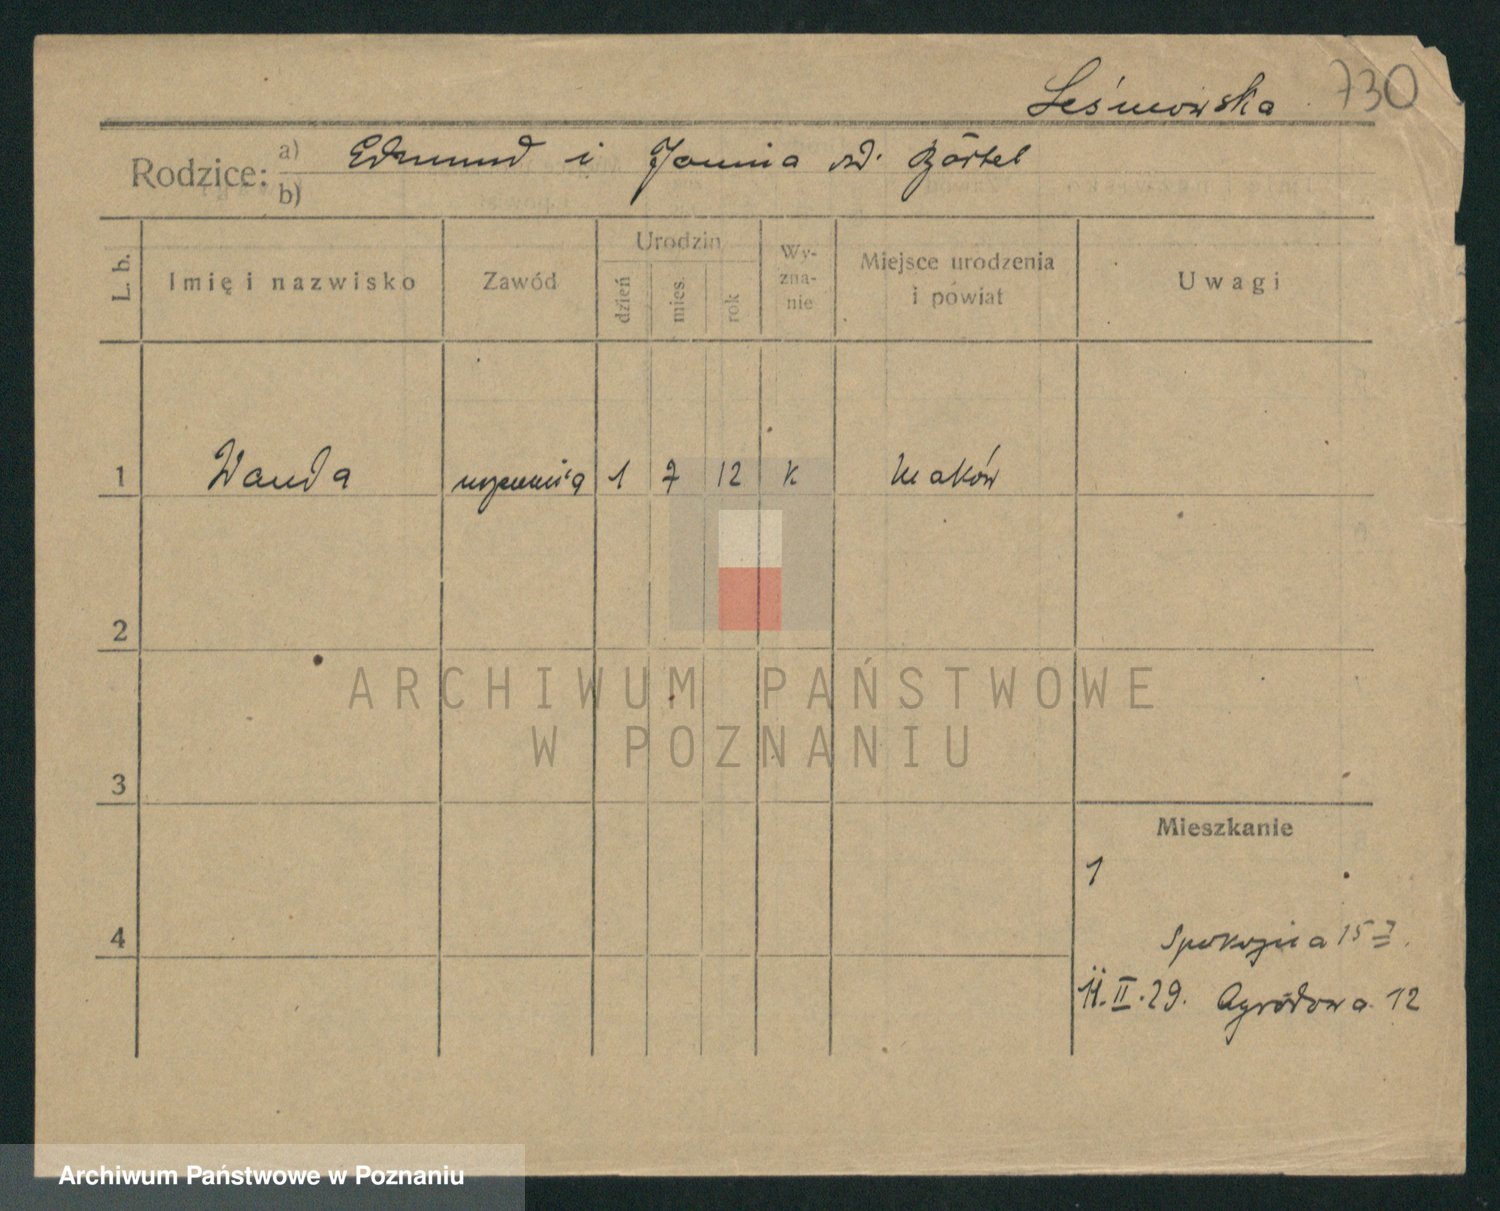 Leśniewska 730
Rodzice: a) Edmund i Janina zd. Bärtel
b)
L. b. Imię i nazwisko Zawód Urodzin dzień mies. rok Wyznanie Miejsce urodzenia i powiat Uwagi
1 Wanda uczennica 1 7 12 k Maków
2
3
Mieszkanie
1
4
Spokojna 15
11.II.29. Ogrodowa 12
ARCHIWUM PAŃSTWOWE
W POZNANIU
Archiwum Państwowe w Poznaniu